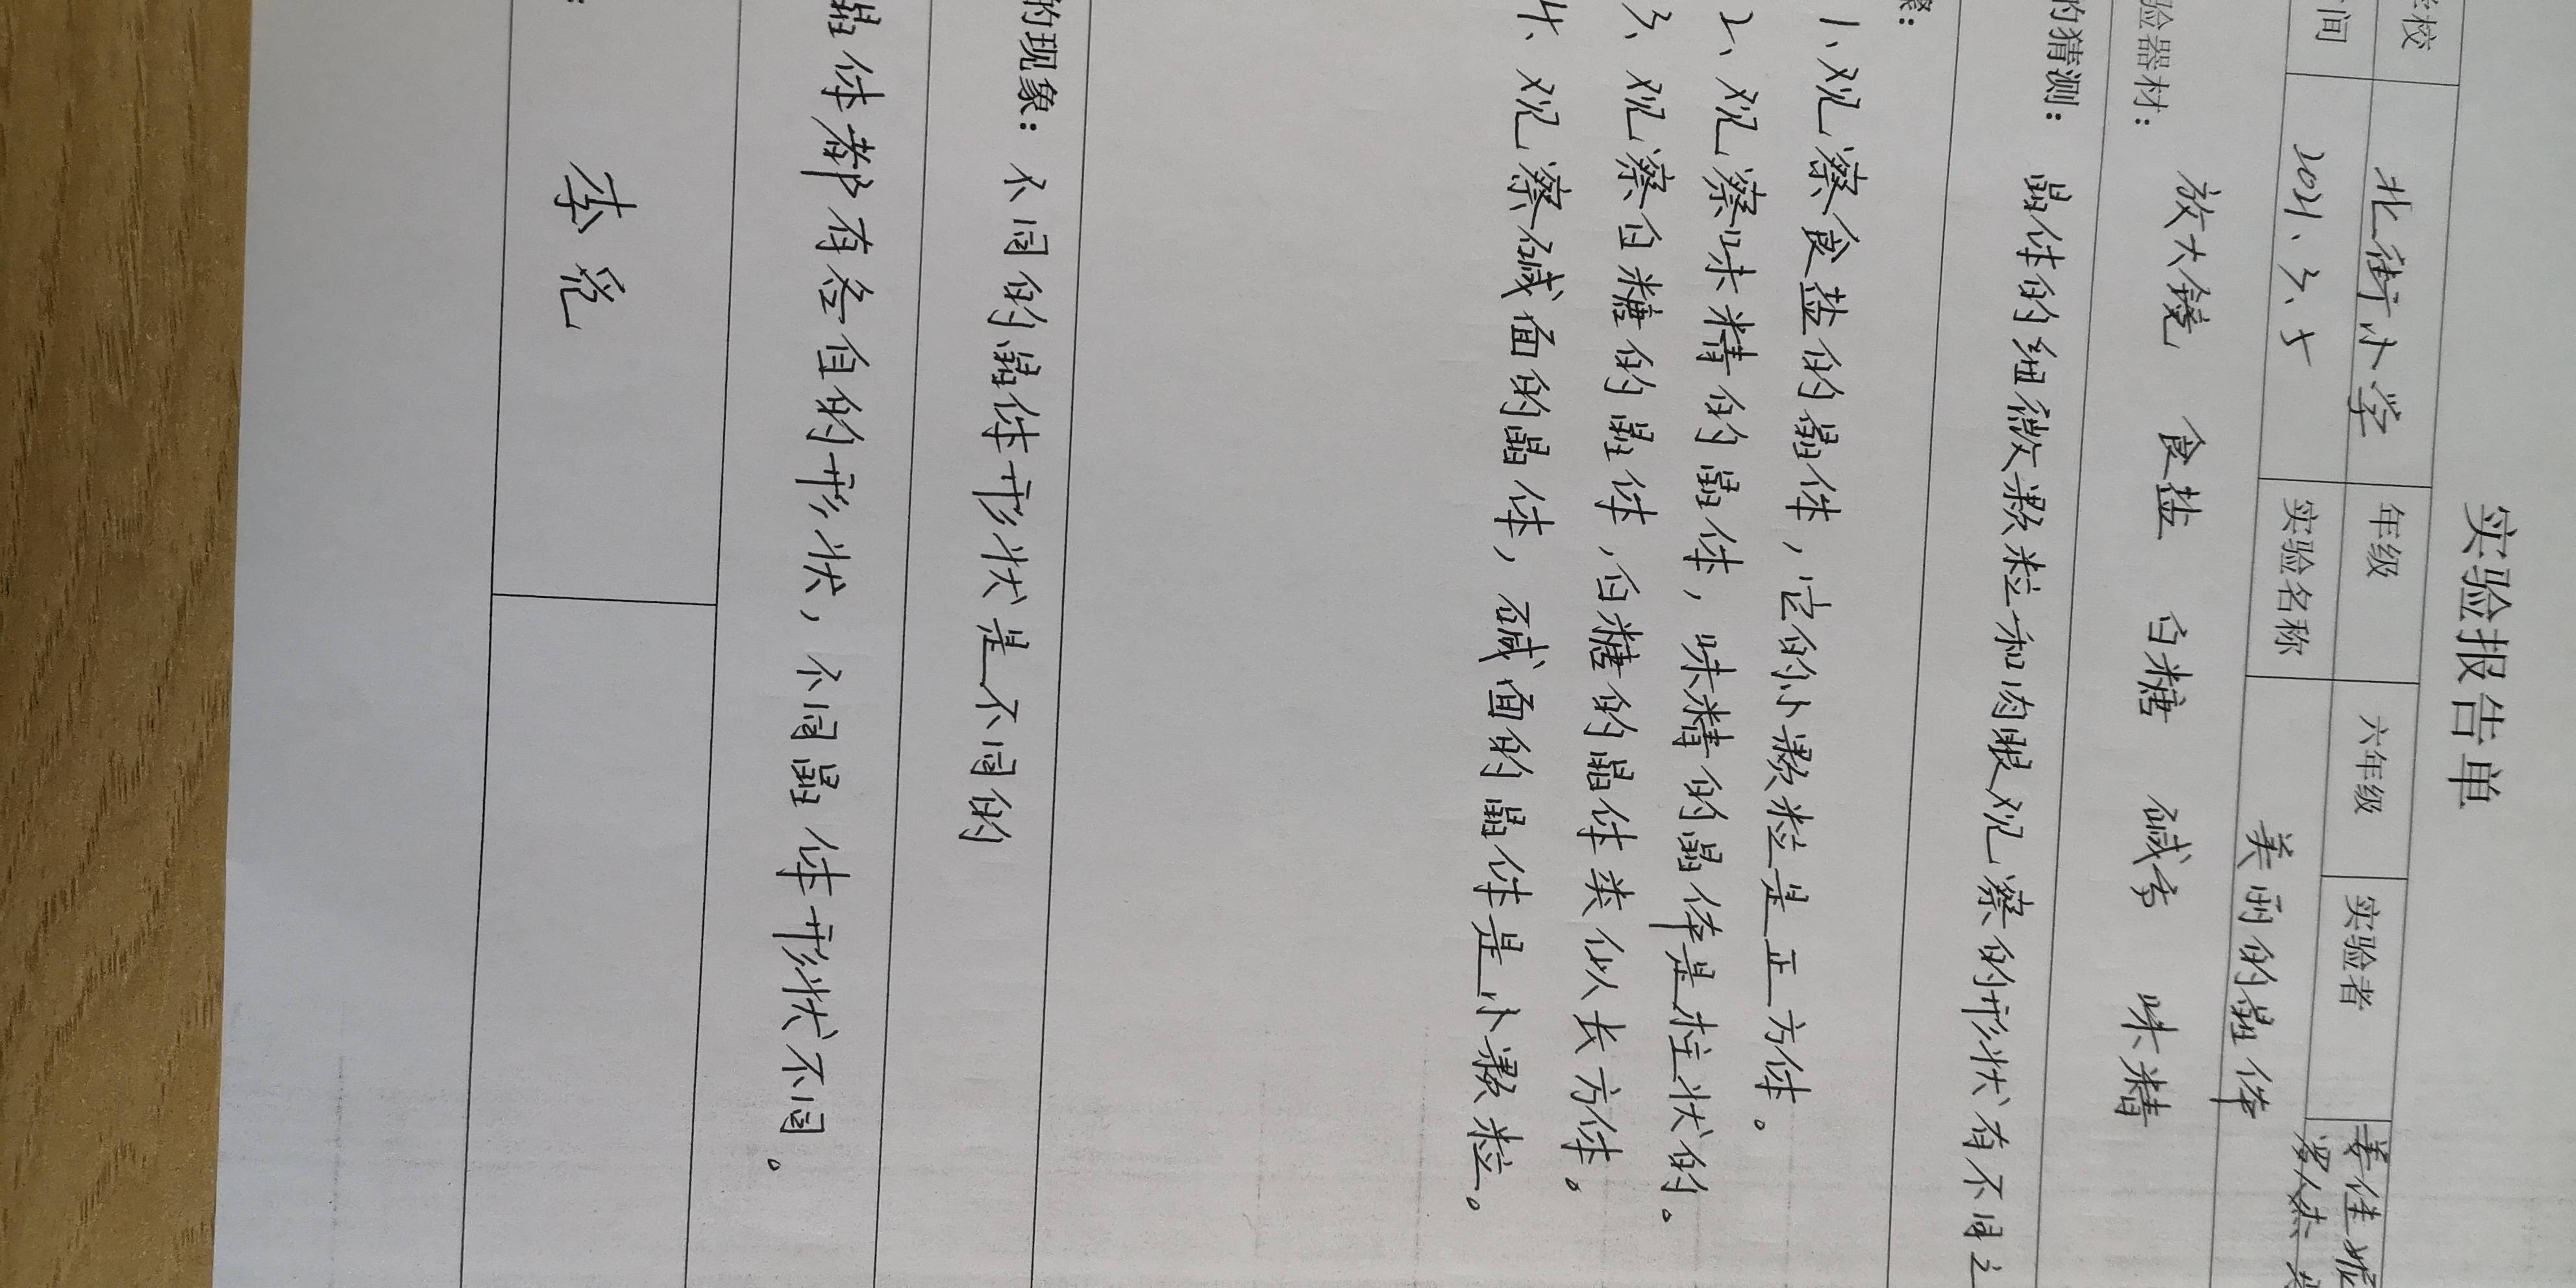 实验报告单
学校 北街小学 年级 六年级 实验者 姜佳
时间 2021、3、5 实验名称 美丽的晶体
验器材： 放大镜 食盐 白糖 碱 味精
的猜测： 晶体的细微颗粒和肉眼观察的形状有不同之
骤：
1、观察食盐的晶体，它的小颗粒是正方体。
2、观察味精的晶体，味精的晶体是柱状的。
3、观察白糖的晶体，白糖的晶体类似长方体。
4、观察碱面的晶体，碱面的晶体是小颗粒。
的现象： 不同的晶体形状是不同的
晶体都有各自的形状，不同晶体形状不同。
： 李